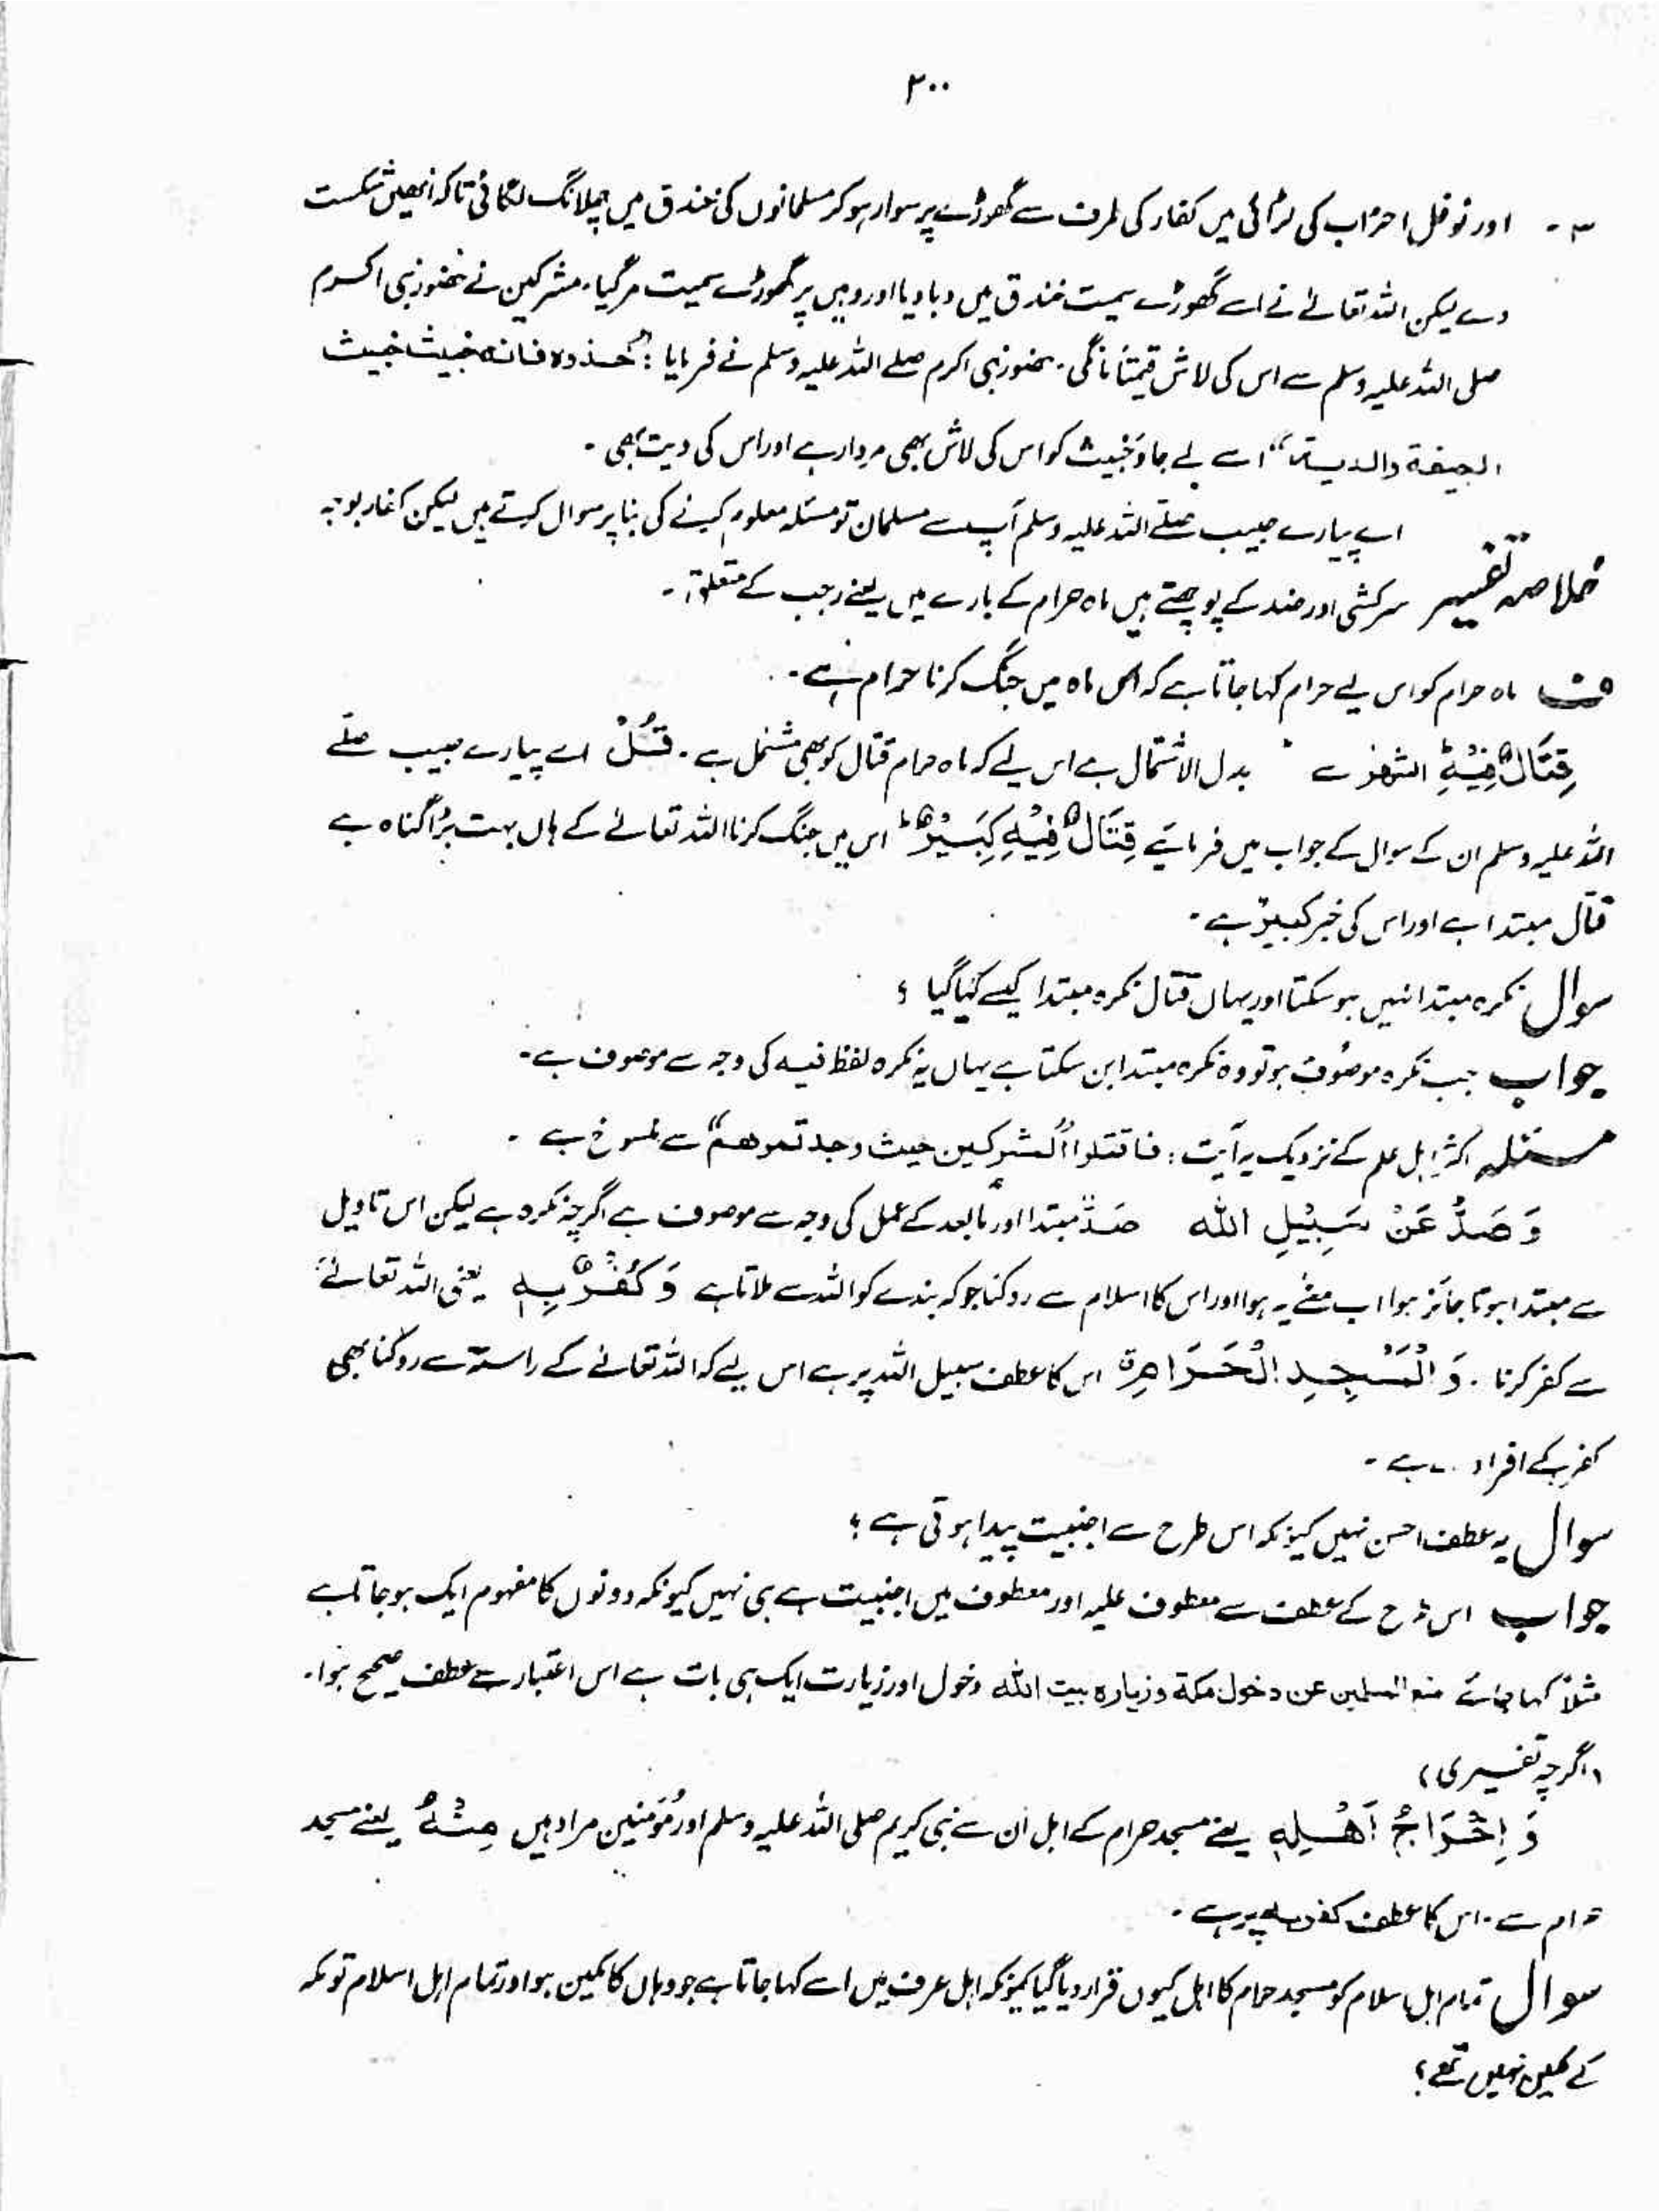 ۲۰۰
۳۔ اور نوفل احزاب کی لڑائی میں کفار کی طرف سے گھوڑے پر سوار ہو کر مسلمانوں کی خندق میں چھلانگ لگائی تاکہ انھیں شکست
دے لیکن اللہ تعالےٰ نے اسے گھوڑے سمیت خندق میں دبا دیا اور وہیں پر گھوڑے سمیت مر گیا۔ مشرکین نے حضور نبی اکرم
صلی اللہ علیہ وسلم سے اس کی لاش قیمتاً مانگی۔ حضور نبی اکرم صلے اللہ علیہ وسلم نے فرمایا: "خذوہ فانہ خبیث خبیث
الجیفة والدیة" اسے لے جاؤ خبیث کو اس کی لاش بھی مردار ہے اور اس کی دیت بھی۔
اے پیارے حبیب صلے اللہ علیہ وسلم آپ سے مسلمان تو مسئلہ معلوم کرنے کی بنا پر سوال کرتے ہیں لیکن کفار بوجہ
خلاصہ تفسیر سرکشی اور ضد کے پوچھتے ہیں ماہ حرام کے بارے میں یعنے رجب کے متعلق۔
ف ماہ حرام کو اس لیے حرام کہا جاتا ہے کہ اس ماہ میں جنگ کرنا حرام ہے۔
قِتَالٍ فِیْہِ الشھر سے بدل الاشتمال ہے اس لیے کہ ماہ حرام قتال کو بھی مشتمل ہے۔ قُلْ اے پیارے حبیب صلے
اللہ علیہ وسلم ان کے سوال کے جواب میں فرمائیے قِتَالٌ فِیْہِ کَبِیْرٌ ط اس میں جنگ کرنا اللہ تعالےٰ کے ہاں بہت بڑا گناہ ہے
قتال مبتدا ہے اور اس کی خبر کبیرٌ ہے۔
سوال نکرہ مبتدا نہیں ہو سکتا اور یہاں قتال نکرہ مبتدا کیسے کہا گیا؟
جواب جب نکرہ موصوف ہو تو وہ نکرہ مبتدا بن سکتا ہے یہاں یہ نکرہ لفظ فیہ کی وجہ سے موصوف ہے۔
مسئلہ اکثر اہل علم کے نزدیک یہ آیت: فاقتلوا المشرکین حیث وجدتموھم" سے منسوخ ہے۔
وَ صَدٌّ عَنْ سَبِیْلِ اللہ صَدٌّ مبتدا اور مابعد کے عمل کی وجہ سے موصوف ہے اگرچہ نکرہ ہے لیکن اس تاویل
سے مبتدا ہونا جائز ہوا اب معنے یہ ہوا اور اس کا اسلام سے روکنا جو کہ بندے کو اللہ سے ملاتا ہے وَ کُفْرٌ بِہٖ یعنی اللہ تعالےٰ
سے کفر کرنا۔ وَ الْمَسْجِدِ الْحَرَامِ ق اس کا عطف سبیل اللہ پر ہے اس لیے کہ اللہ تعالےٰ کے راستہ سے روکنا بھی
کفر کے افراد ہے۔
سوال یہ عطف احسن نہیں کیونکہ اس طرح سے اجنبیت پیدا ہوتی ہے؟
جواب اس طرح کے عطف سے معطوف علیہ اور معطوف میں اجنبیت ہے ہی نہیں کیونکہ دونوں کا مفہوم ایک ہو جاتا ہے
مثلاً کہا جائے منع المسلمین عن دخول مکة و زیارہ بیت اللہ دخول اور زیارت ایک ہی بات ہے اس اعتبار سے عطف صحیح ہوا۔
(اگرچہ تفسیری)
وَ اِخْرَاجُ اَھْلِہٖ یعنے مسجد حرام کے اہل ان سے نبی کریم صلی اللہ علیہ وسلم اور مؤمنین مراد ہیں مِنْہُ یعنے مسجد
حرام سے۔ اس کا عطف کفر بہ پر ہے۔
سوال تمام اہل اسلام کو مسجد حرام کا اہل کیوں قرار دیا گیا کیونکہ اہل عرف میں اسے کہا جاتا ہے جو وہاں کا مکین ہو اور تمام اہل اسلام تو مکہ
کے مکین نہیں تھے؟